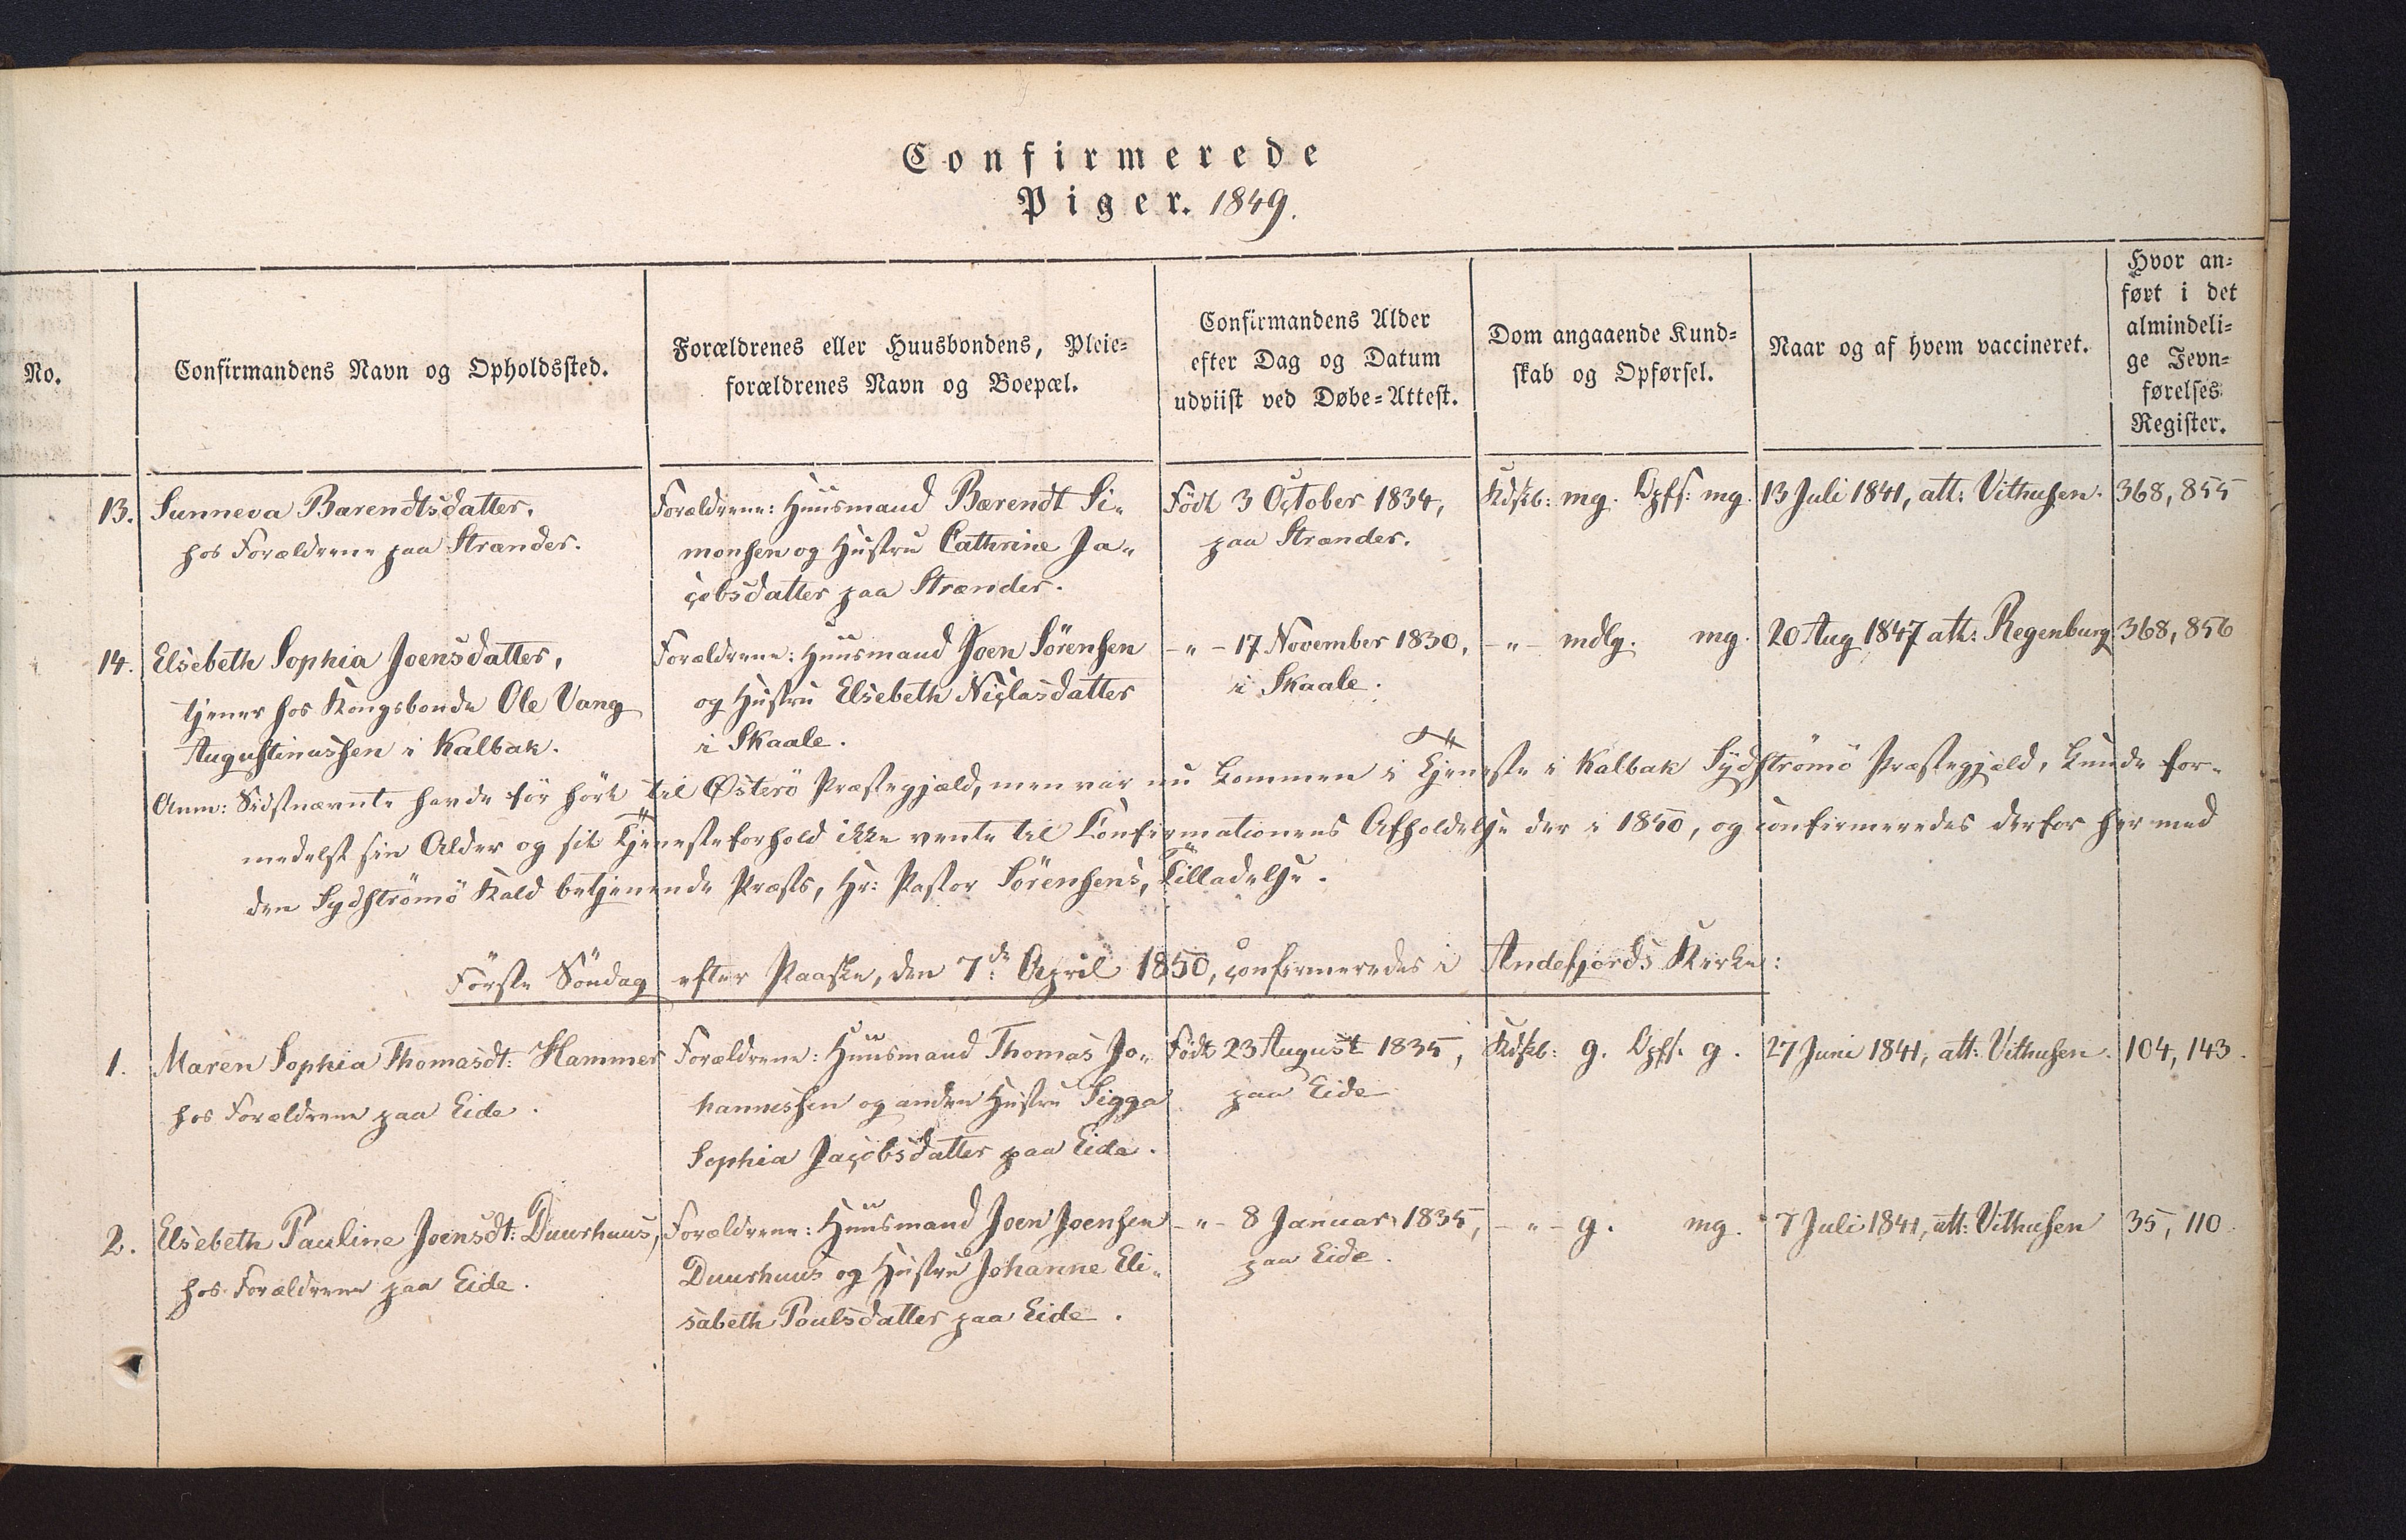 Confirmerede
Piger. 1849.
No.
Confirmandens Navn og Opholdssted.
Forældrenes eller Huusbondens, Pleie-
forældrenes Navn og Boepæl.
Confirmandens Alder
efter Dag og Datum
udviist ved Døbe-Attest.
Dom angaaende Kund-
skab og Opførsel.
Naar og af hvem vaccineret.
Hvor an-
ført i det
almindeli-
ge Jevn-
førelses
Register.
13.
Sunneva Barendtsdatter,
hos Forældrene paa Strænder.
Forældrene: Huusmand Bærendt Si-
monsen og Hustru Cathrine Ja-
cobsdatter paa Strænder.
Födt 3 October 1834,
paa Strænder.
Kdskb: mg. Opfs: mg.
13 Juli 1841, att: Vithusen.
368, 855
14.
Elsebeth Sophia Joensdatter,
tjener hos Kongsbonde Ole Vang
Augustinussen i Kalbak.
Forældrene: Huusmand Joen Sörensen
og Hustru Elsebeth Niclasdatter
i Skaale.
-"- 17 November 1830,
i Skaale.
-"- mdlg. mg.
20 Aug 1847 att: Regenburg
368, 856
Anm: Sidstnævnte havde för hört til Österö Præstegjæld, men var nu kommen i Tjeneste i Kalbak Sydströmö Præstegjæld, kunde for-
medelst sin Alder og sit Tjenesteforhold ikke vente til Confirmationens Afholdelse der i 1850, og confirmeredes derfor her med
den Sydströmö Kald betjenende Præsts, Hr: Pastor Sörensens, Tilladelse.
Förste Söndag efter Paaske, den 7de April 1850, confirmeredes i Andefjords Kirke:
1.
Maren Sophia Thomasdt: Hammer
hos Forældrene paa Eide.
Forældrene: Huusmand Thomas Jo-
hannessen og anden Hustru Sigga
Sophia Jacobsdatter paa Eide.
Födt 23 August 1835,
paa Eide
Kdskb: g. Opfs. g.
27 Juni 1841, att: Vithusen.
104, 143.
2.
Elsebeth Pauline Joensdt: Duurhuus,
hos Forældrene paa Eide.
Forældrene: Huusmand Joen Joensen
Duurhuus og Hustru Johanne Eli-
sabeth Poulsdatter paa Eide.
-"- 8 Januar 1835,
paa Eide.
-"- g. mg.
7 Juli 1841, att: Vithusen
35, 110.